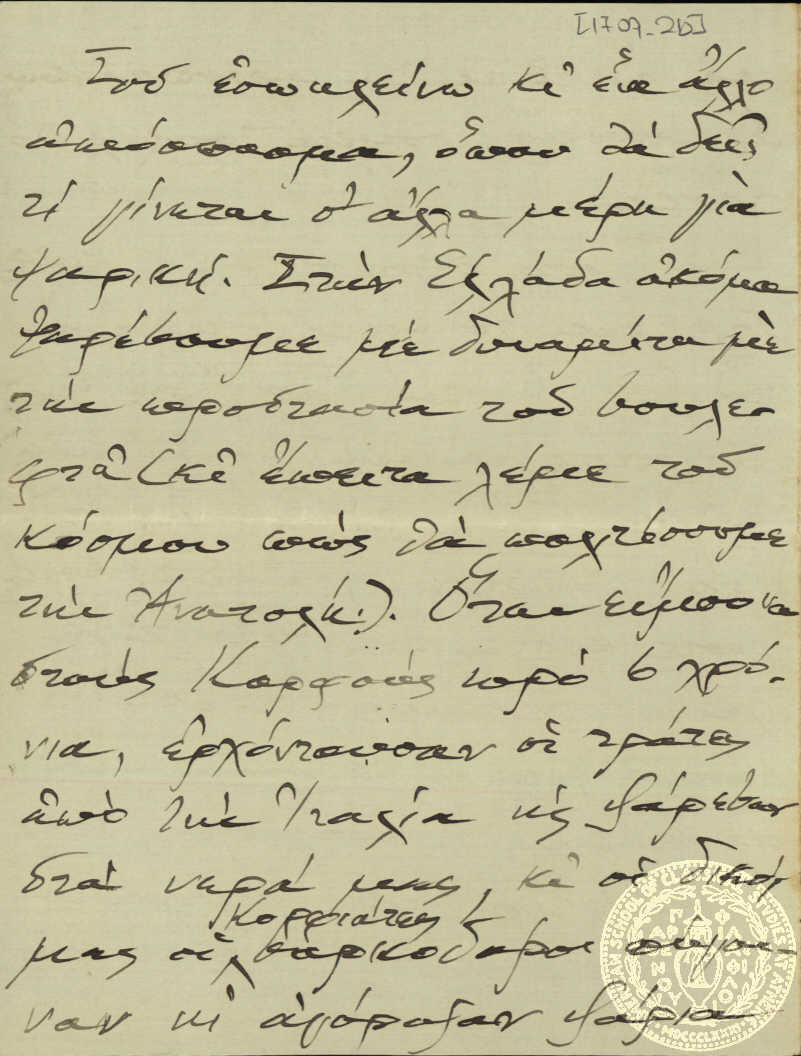 [1707-2b]
Σοῦ ἐσωκλείνω κι' ἕνα ἄλλο
ἀπόσπασμα, ὅπου θὰ δεῖς
τί γίνεται σ' ἄλλα μέρη γιὰ
ψαρική. Στὴν Ἑλλάδα ἀκόμα
ψαρέβουμε μὲ δυναμίτη μὲ
τὴν προστασία τοῦ βουλε-
φτᾶ (κι' ἔπειτα λέμε τοῦ
κόσμου πῶς θὰ πολιτέσουμε
τὴν Ἀνατολή.). Ὅταν εἴμουνα
στοὺς Κορφοὺς πρὸ 6 χρό-
νια, ἐρχόντουσαν οἱ τράτες
ἀπὸ τὴν Ἰταλία κι' ψάρεβαν
στὰ νερά μας, κι' οἱ δικοί
Κορφιάτες
μας οἱ βαρκοῦδηροι πήγαι-
ναν κι' ἀγόραζαν ψάρια